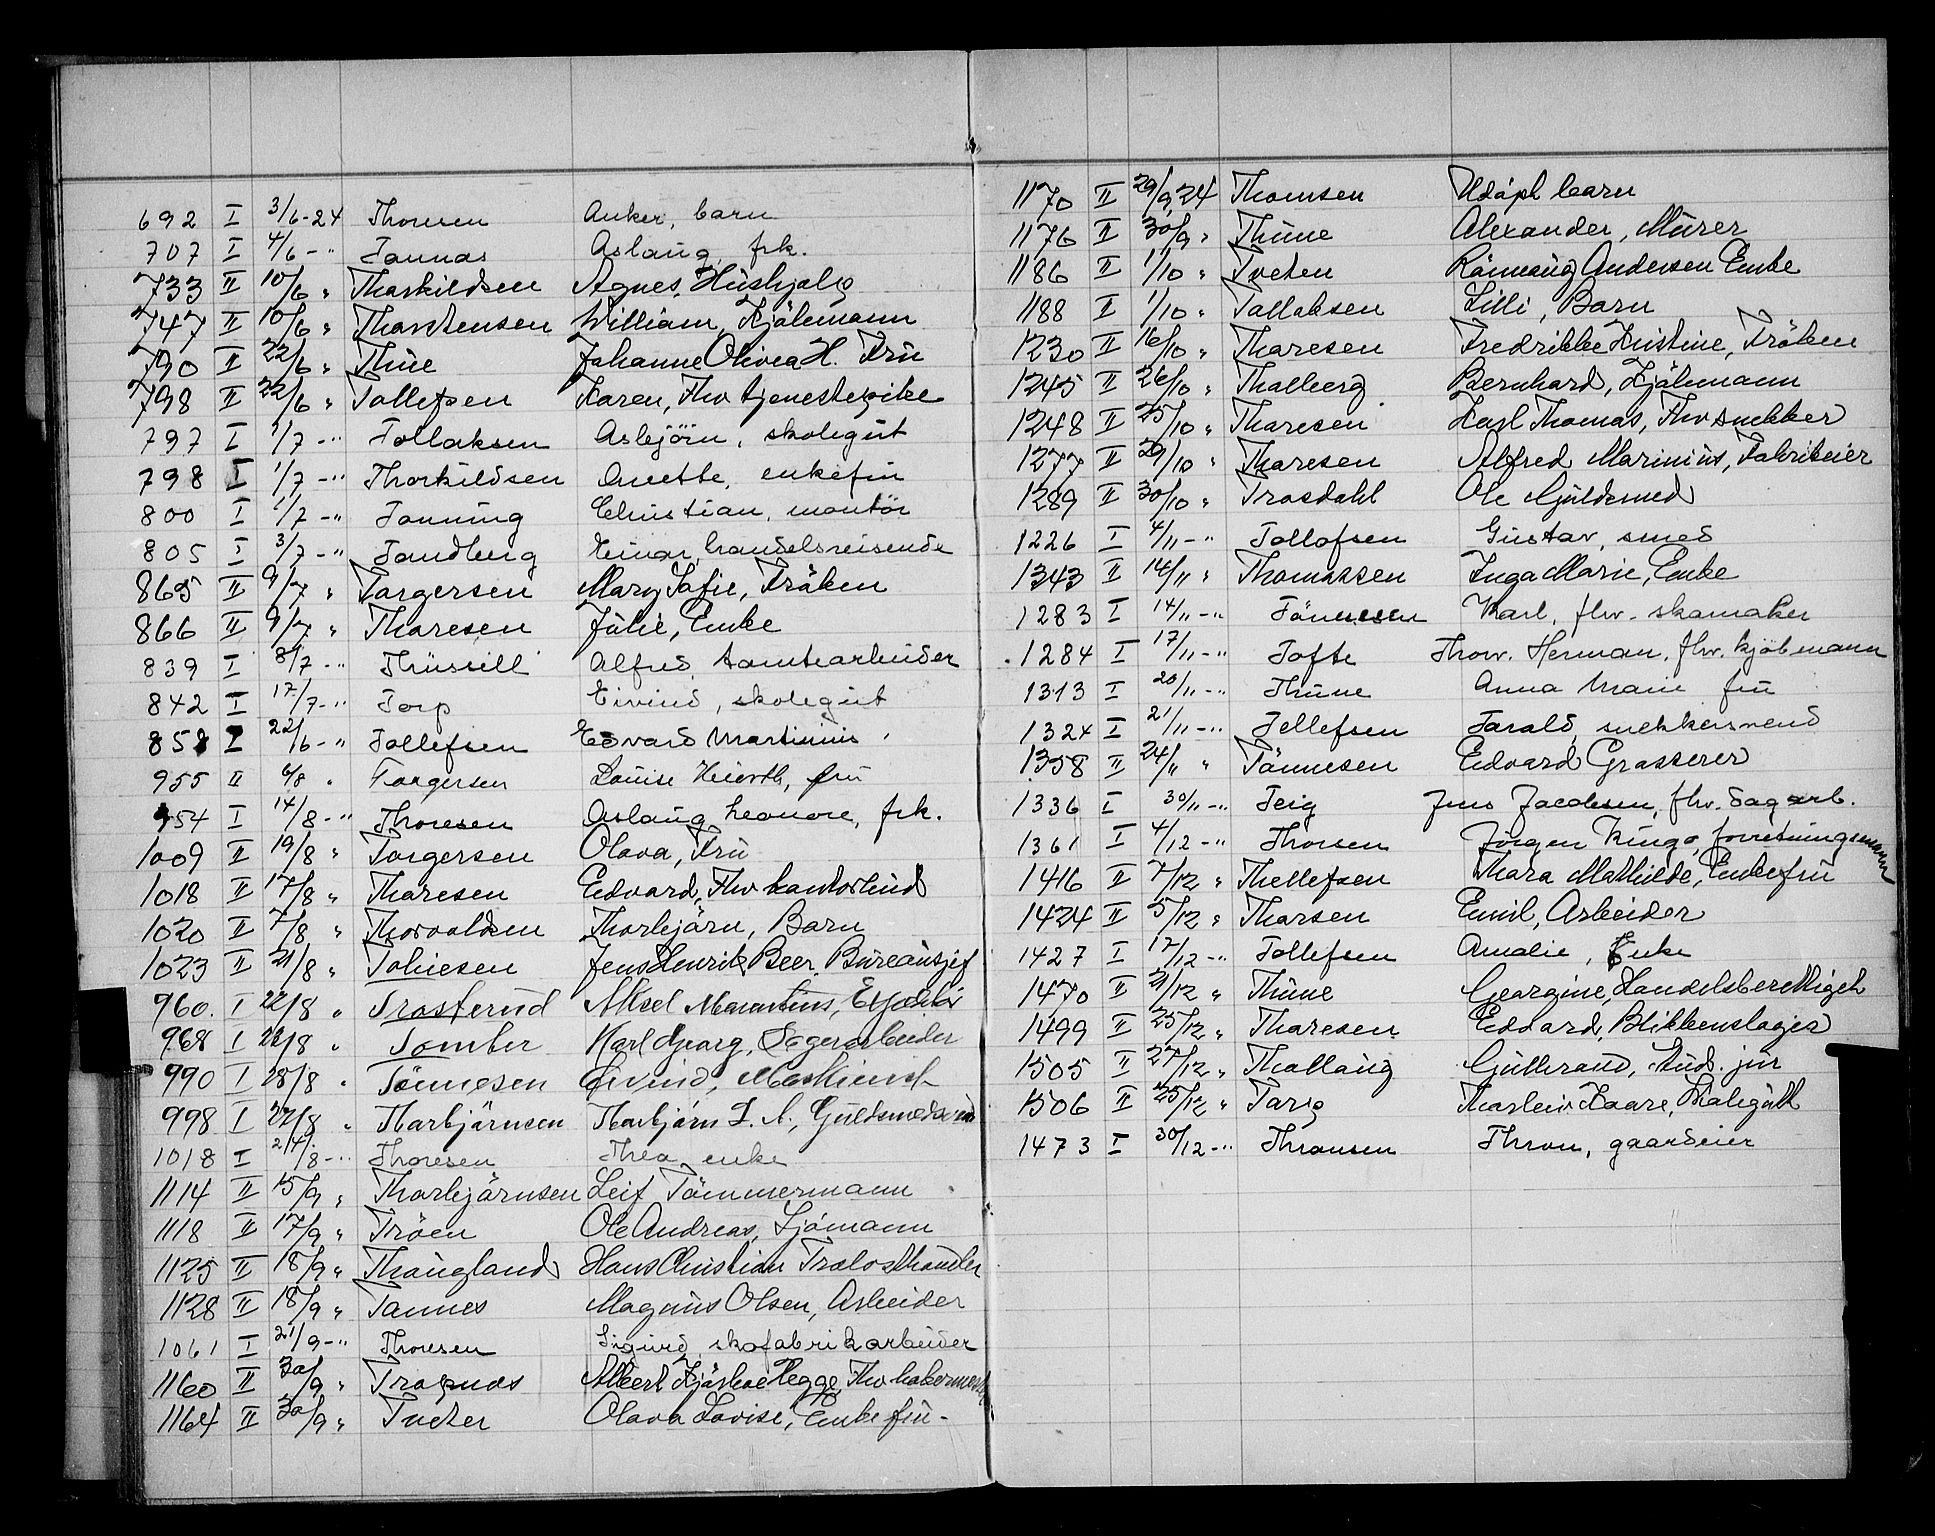 692 I 3/6-24 Thoresen Anker, barn
707 I 4/6 -" Tannas Aslaug, frk.
733 II 10/6 " Thorkildsen Agnes, Hushjælp
747 II 10/6 " Thorstensen William, Kjøbmann
790 II 22/6 " Thue Johanne Olivea H. Fru
798 II 22/6 " Tollefsen Karen, Fhv tjenestepike
797 I 1/7 -" Tollaksen Asbjörn, skolegut
798 I 1/7 -" Thorkildsen Anette, enkefru
800 I 1/7 -" Tanning Christian, montör
805 I 3/7 -" Tandberg Einar, handelsreisende
865 II 9/7 " Torgersen Mary Sofie, Frøken
866 II 9/7 " Thoresen Julie, Enke
839 I 8/7 -" Thrussell Alfred, tomtearbeider
842 I 17/7 -" Torp Eivind, skolegut
858 I 22/6 -" Tollefsen Edvard Martinius
955 II 6/8 " Torgersen Louise Hierth, fru
954 I 14/8 -" Thoresen Aslaug Leonore, frk.
1009 II 19/8 " Torgersen Olava, Fru
1018 II 17/8 " Thoresen Edvard, Fhv kontorbud
1020 II 7/8 " Thorvaldsen Thorbjørn, Barn
1023 II 21/8 " Tobiesen Jens Henrik Beer, Bureausjef
960. I 22/8 " Trosterud Aksel Mauritius, Expeditör
968 I 22/8 " Tomter Karl Georg, Lagerarbeider
990 I 28/8 " Tönnesen Eivind, Maskinist
998 I 22/8 " Thorbjørnsen Thorbjørn L. A., Guldsmedsvend
1018 I 24/8 -" Thoresen Thea, enke
1114 II 15/9 " Thorbjørnsen Leif Tømmermann
1118 II 17/9 " Trøen Ole Andreas, Sjømann
1125 II 18/9 " Thaugland Hans Christian Trælasthandler
1128 II 18/9 " Tannes Magnus Olsen, Arbeider
1061 I 21/9 -" Thoresen Sigurd, skofabrikarbeider
1160 II 30/9 " Tragnas Albert Kjøshoe Hegge, Fhv
1164 II 30/9 " Tveter Olava Lovise, Enkefru -
1170 II 29/9, 24 Thomsen Udøpt barn
1176 II 30/9 " Thune Alexander, Murer
1186 II 1/10 " Tveten Rønnaug Andersen Enke
1188 II 1/10 " Tollaksen Lilli, Barn
1230 II 16/10 " Thoresen Fredrikke Kristine, Frøken
1245 II 26/10 " Tholberg Bernhard, Kjøbmann
1248 II 25/10 " Thoresen Karl Thomas, Fhv snekker
1277 II 29/10 " Thoresen Alfred Marinius, Fabrikeier
1289 II 30/10 " Trosdahl Ole Guldsmed
1226 I 4/11 -" Tollofsen Gustav, smed
1343 II 14/11 " Thomassen Inga Marie, Enke
1283 I 14/11 -" Tönnesen Karl, fhv. skomaker
1284 I 17/11 -" Tofte Thorv. Herman, fhv. kjöbmann
1313 I 20/11 -" Thune Anna Marie fru
1324 I 21/11 -" Tellefsen Tarald, snekkersvend
1358 II 24/11 " Tønnesen Edvard Grosserer
1336 I 30/11 -" Teig Jens Jacobsen, fhv. dagarb.
1361 I 4/12 -" Thorsen Jörgen Kingo, forretningsmann
1416 II 7/12 " Thellefsen Thora Mathilde, Enkefru
1424 II 5/12 " Thorsen Emil, Arbeider
1427 I 17/12 -" Tollefsen Amalie, Enke
1470 II 21/12 " Thune Georgine, Handelsberettiget
1499 II 25/12 " Thoresen Edvard, Blikkenslager
1505 II 27/12 " Thollaug Gulbrand, Stud. jur
1506 II 25/12 " Torp Thorleiv Kaare, Skolegutt
1473 I 30/12 -" Thronsen Thron, gaardeier